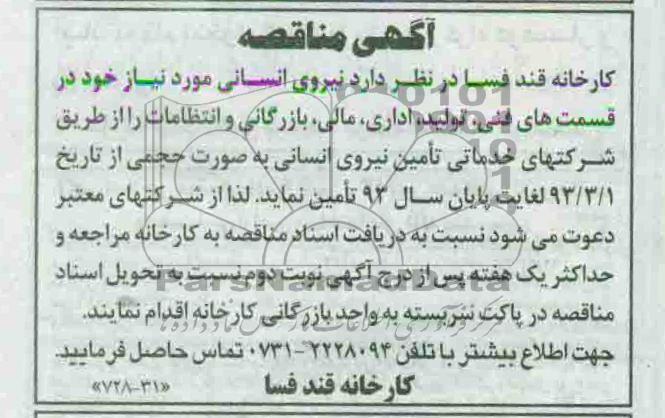 آگهی مناقصه
کارخانه قند فسا در نظر دارد نیروی انسانی مورد نیاز خود در
قسمت های فنی، تولید، اداری، مالی، بازرگانی و انتظامات را از طریق
شرکتهای خدماتی تأمین نیروی انسانی به صورت حجمی از تاریخ
۹۳/۳/۱ لغایت پایان سال ۹۳ تأمین نماید. لذا از شرکتهای معتبر
دعوت می شود نسبت به دریافت اسناد مناقصه به کارخانه مراجعه و
حداکثر یک هفته پس از درج آگهی نوبت دوم نسبت به تحویل اسناد
ParsNamadData
مناقصه در پاکت سربسته به واحد بازرگانی کارخانه اقدام نمایند.
جهت اطلاع بیشتر با تلفن ۲۲۲۸۰۹۴-۰۷۳۱ تماس حاصل فرمایید.
کارخانه قند فسا
«۷۲۸-۳۱»